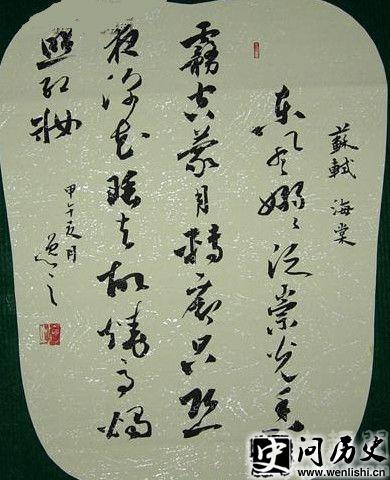 蘇軾 海棠
东风嫋〻泛崇光香
霧空蒙月轉廊只恐
夜深花睡去故燒高燭
照红妝
甲午亥月
史问历史
www.wenlishi.cn